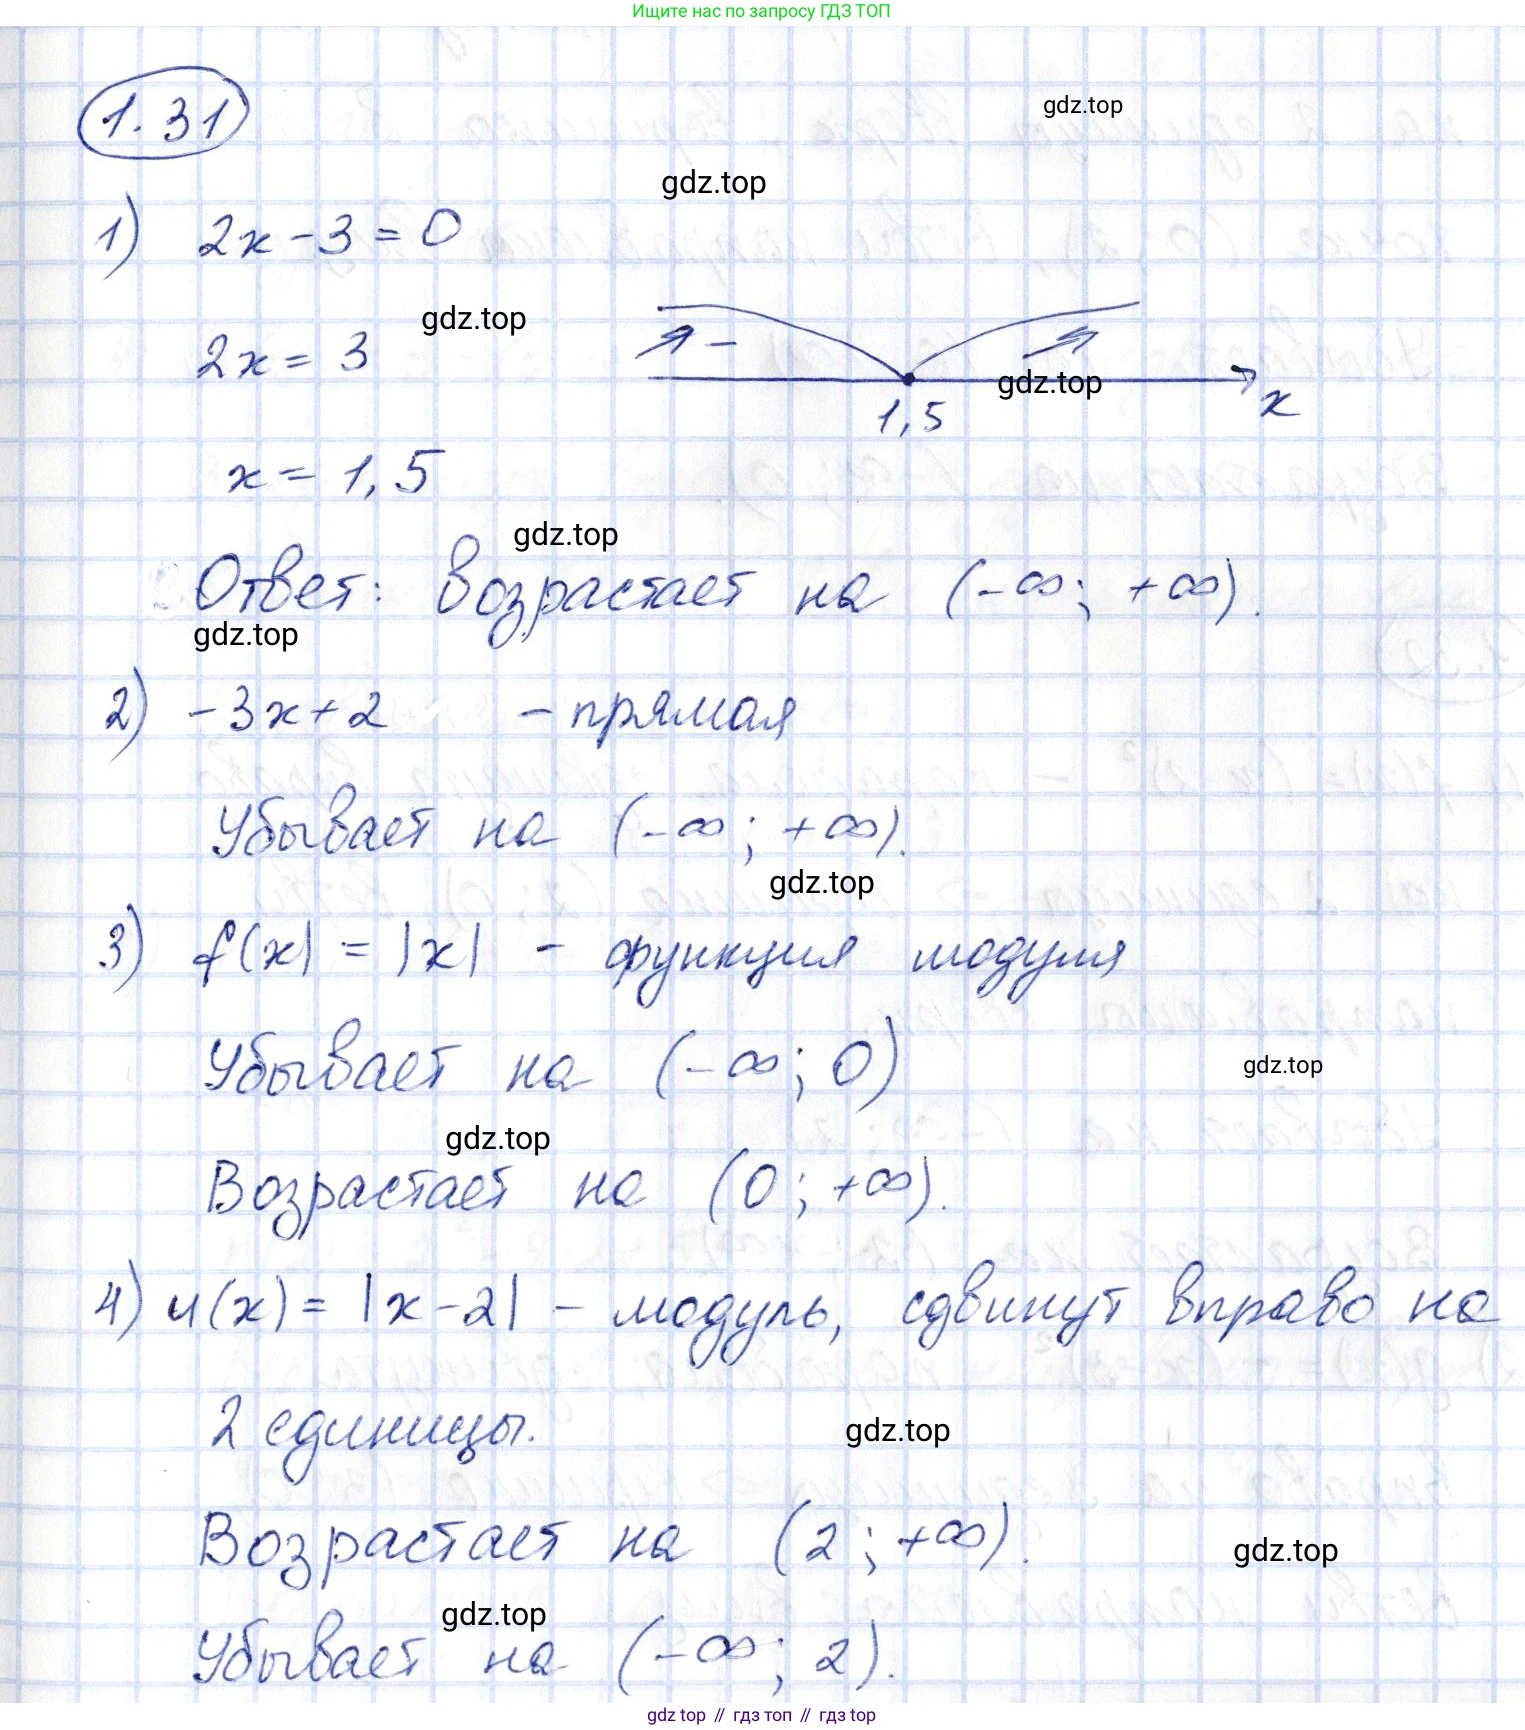 Ищите нас по запросу ГДЗ ТОП
1.31
gdz.top
gdz.top
1) 2x - 3 = 0
gdz.top
2x = 3
-
gdz.top
1,5
x
x = 1,5
gdz.top
Ответ: возрастает на (-∞; +∞).
gdz.top
2) -3x+2 - прямая
Убывает на (-∞; +∞).
gdz.top
3) f(x) = |x| - функция модуля
Убывает на (-∞; 0)
gdz.top
gdz.top
Возрастает на (0; +∞).
4) u(x) = |x-2| - модуль, сдвинут вправо на
2 единицы.
gdz.top
Возрастает на (2; +∞).
gdz.top
gdz.top
Убывает на (-∞; 2).
gdz top // гдз топ // gdz top